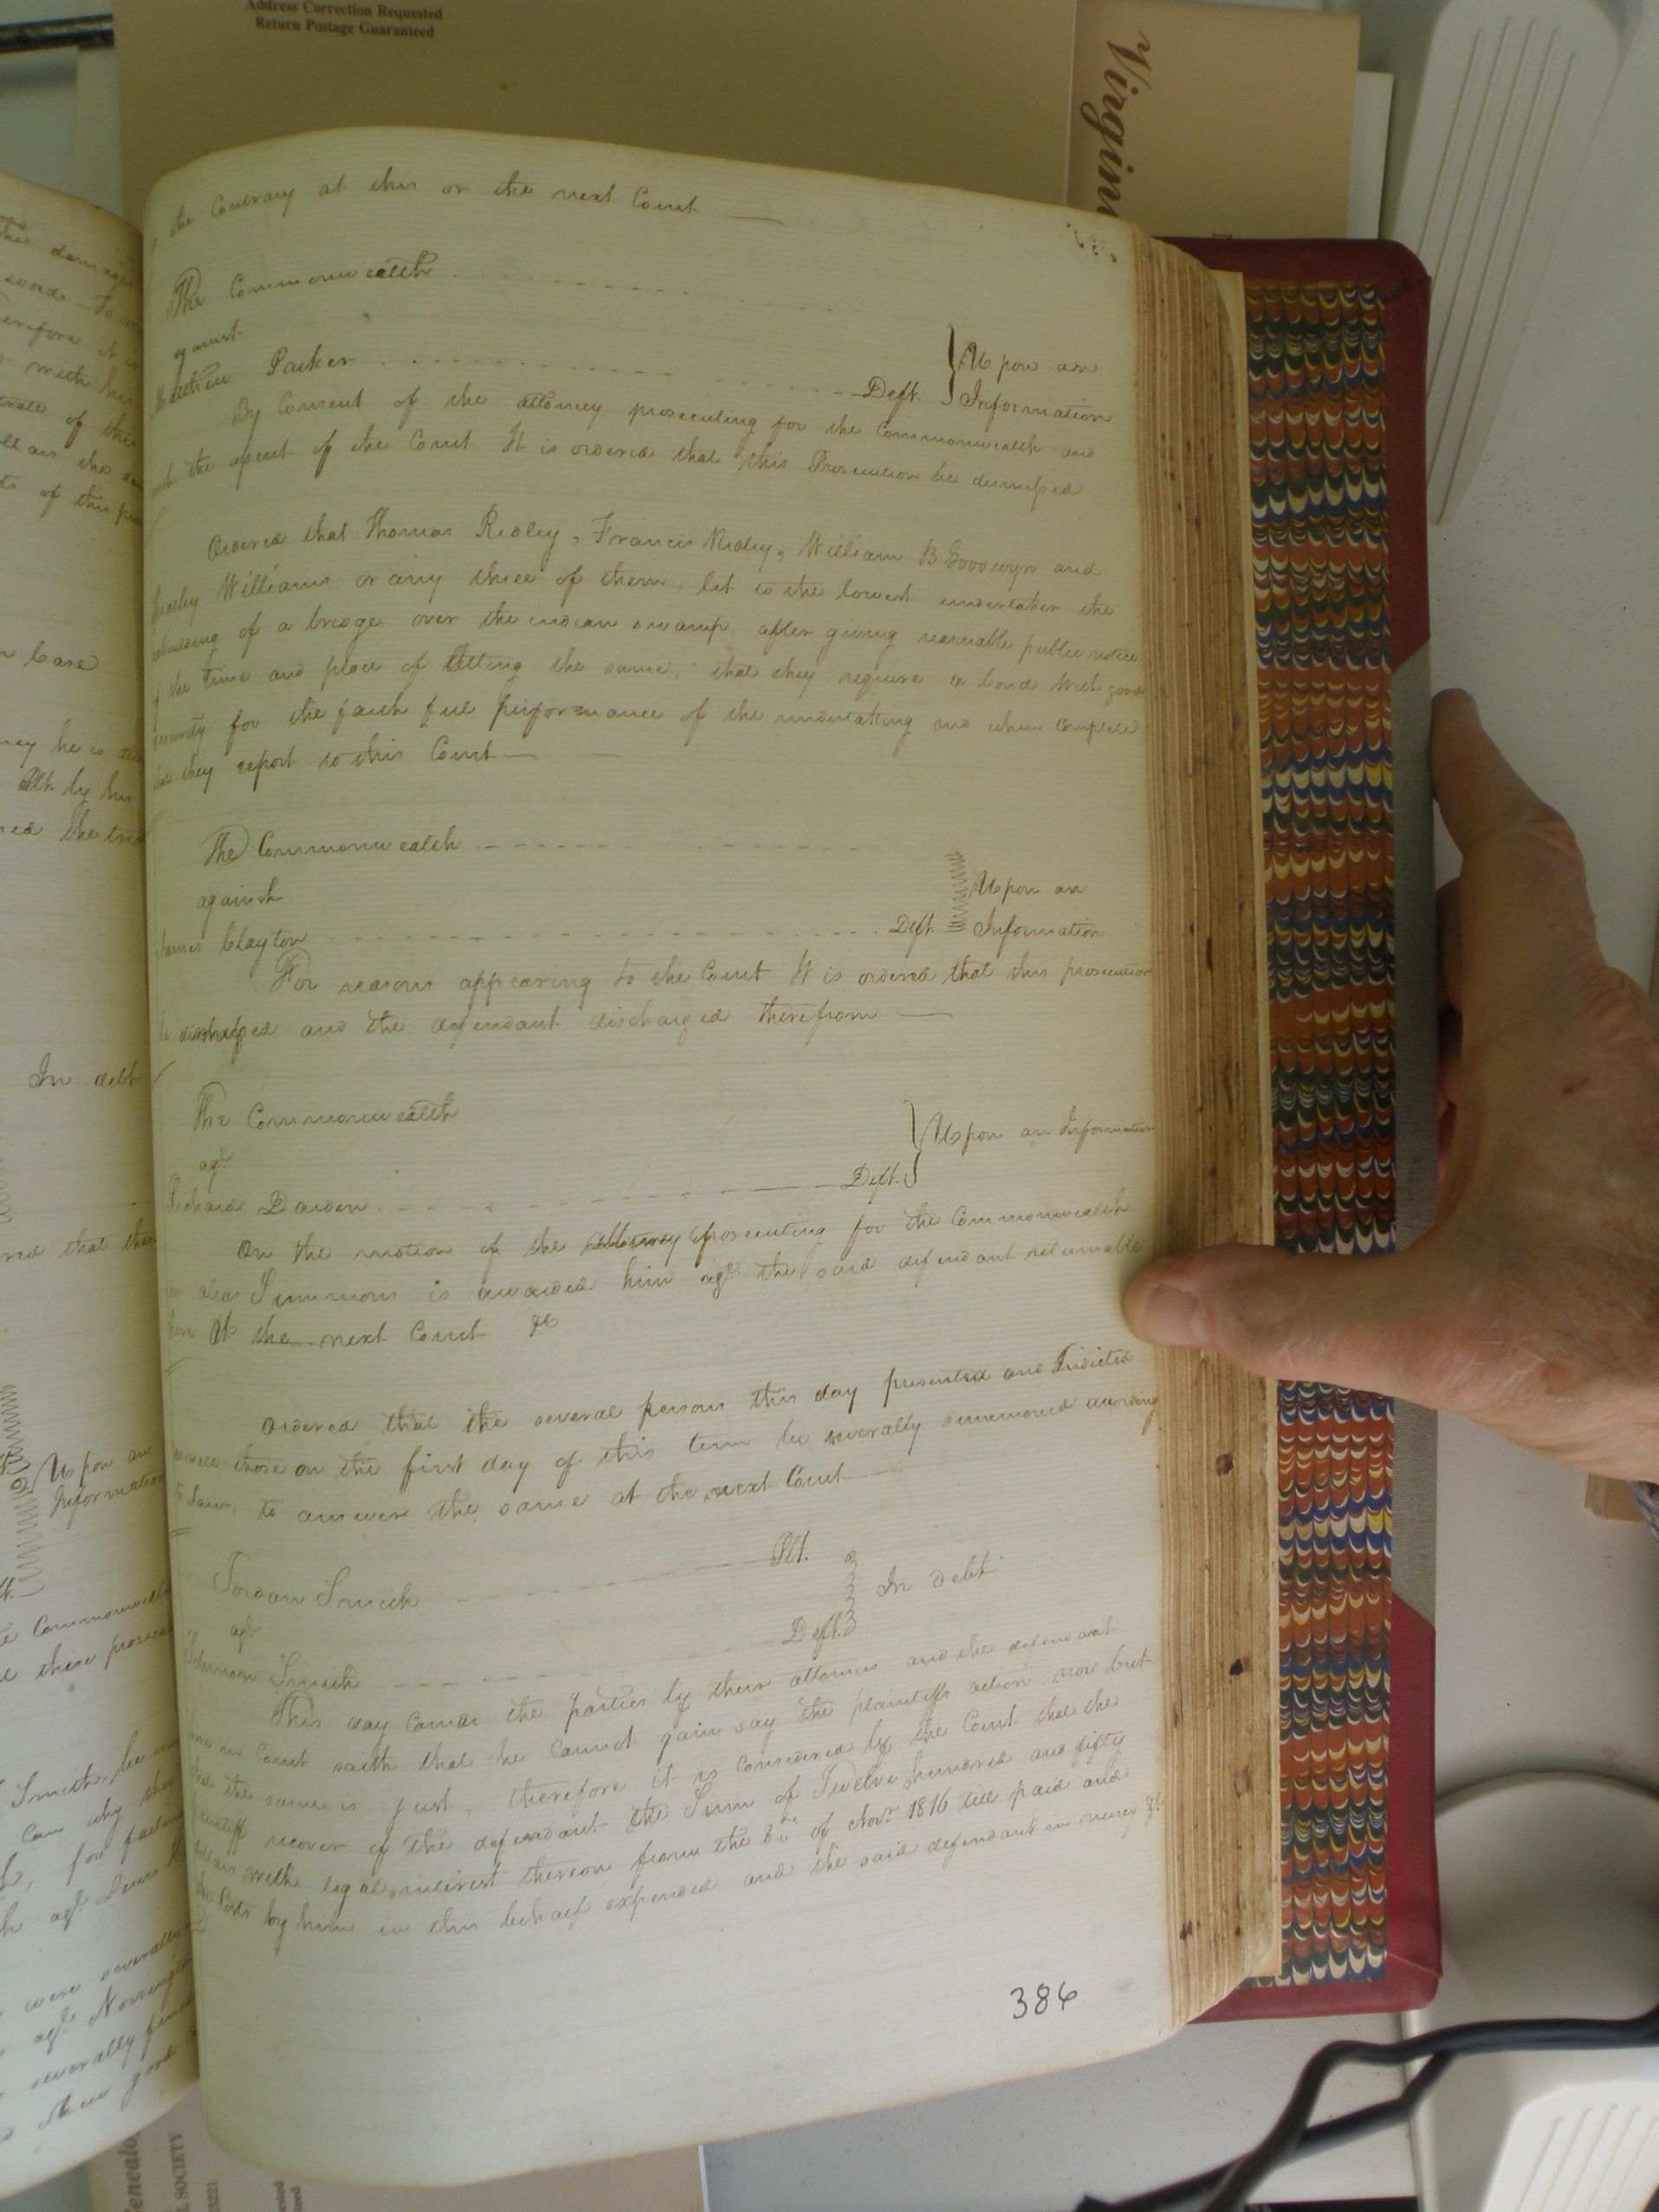 Address Correction Requested
Return Postage Guaranteed
Virgin
the Contrary at this or the next Court
The Commonwealth
against
Mathew Parker Deft. Upon an Information
By Consent of the attorney prosecuting for the Commonwealth and
with the assent of the Court It is ordered that this Prosecution be dismissed
Ordered that Thomas Ridley, Francis Ridley, William B Goodwyn and
Williams or any three of them, let to the lowest undertaker the
rebuilding of a bridge over the indian swamp, after giving reasonable public notice
of the time and place of letting the same, that they require a bond with good
security for the faithful performance of the undertaking and when compleated
that they report to this Court
The Commonwealth
against
James Clayton Deft. Upon an Information
For reasons appearing to the Court It is ordered that this prosecution
be and the defendant discharged therefrom
The Commonwealth
agt.
Richard Darden Deft. Upon an Information
On the motion of the attorney prosecuting for the Commonwealth
an alias Summons is awarded him agt. the said defendant returnable
here At the next Court &c
Ordered that the several persons this day presented and Indicted
as well those on the first day of this term be severally summoned according
to Law, to answer the same at the next Court
Jordan Smith Plt.
agt. In debt
Smith Deft.
This day came the parties by their attornies and the defendant
in Court saith that he cannot gain say the plaintiffs action nor but
that the same is just, therefore it is considered by the Court that the
plaintiff recover of the defendant the Sum of Twelve hundred and fifty
dollars with legal interest thereon from the of Novr. 1816 till paid and
the Costs by him in this behalf expended and the said defendant in mercy &c.
386
the damages
n Case
Plt. by his
In debt
red that the
Upon an
Information
Commonwealth
Smith, be
can why they
agt. Lewis
were severally
agt.
severally
SOCIETY
23221